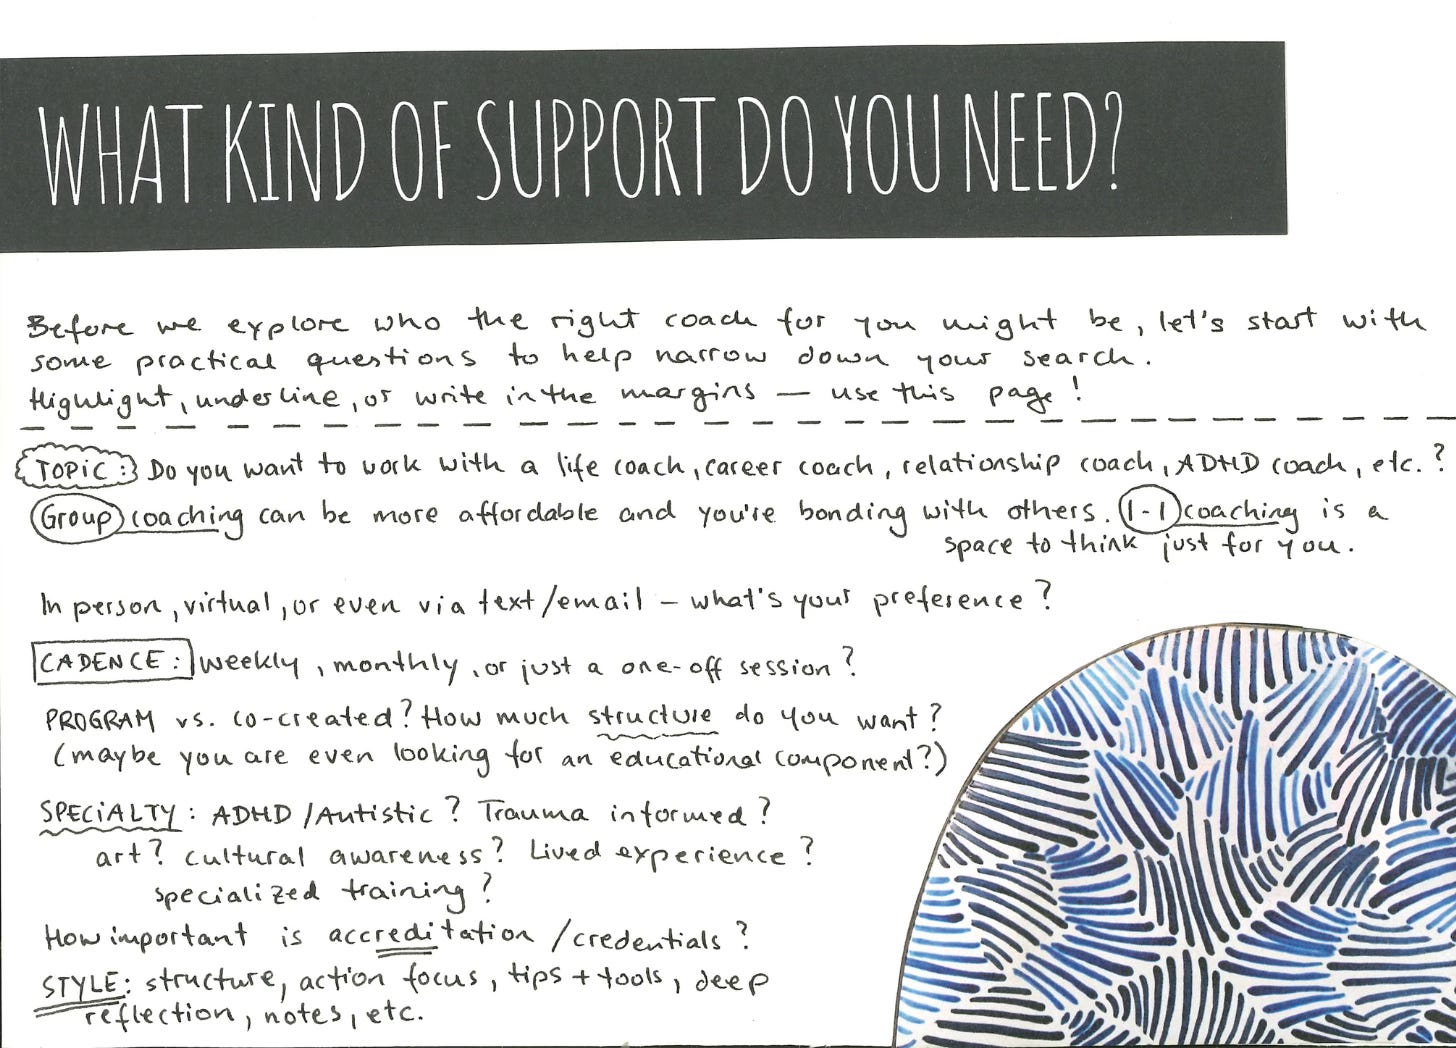 WHAT KIND OF SUPPORT DO YOU NEED?
Before we explore who the right coach for you might be, let's start with
some practical questions to help narrow down your search.
Highlight, underline, or write in the margins — use this page!
TOPIC: Do you want to work with a life coach, career coach, relationship coach, ADHD coach, etc.?
Group coaching can be more affordable and you're bonding with others. 1-1 coaching is a
space to think just for you.
In person, virtual, or even via text/email – what's your preference?
CADENCE: weekly, monthly, or just a one-off session?
PROGRAM vs. co-created? How much structure do you want?
(maybe you are even looking for an educational component?)
SPECIALTY: ADHD/Autistic? Trauma informed?
art? cultural awareness? Lived experience?
specialized training?
How important is accreditation/credentials?
STYLE: structure, action focus, tips + tools, deep
reflection, notes, etc.